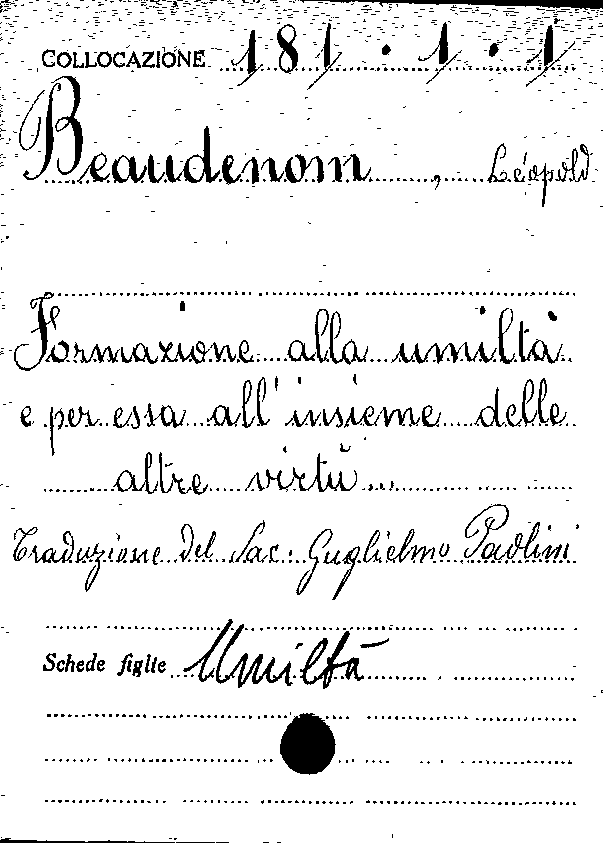 COLLOCAZIONE 181.1.1
Beaudenom, Léopold
Formazione alla umiltà
e per essa all'insieme delle
altre virtù...
Traduzione del Sac. Guglielmo Paolini
Schede figlie Umiltà